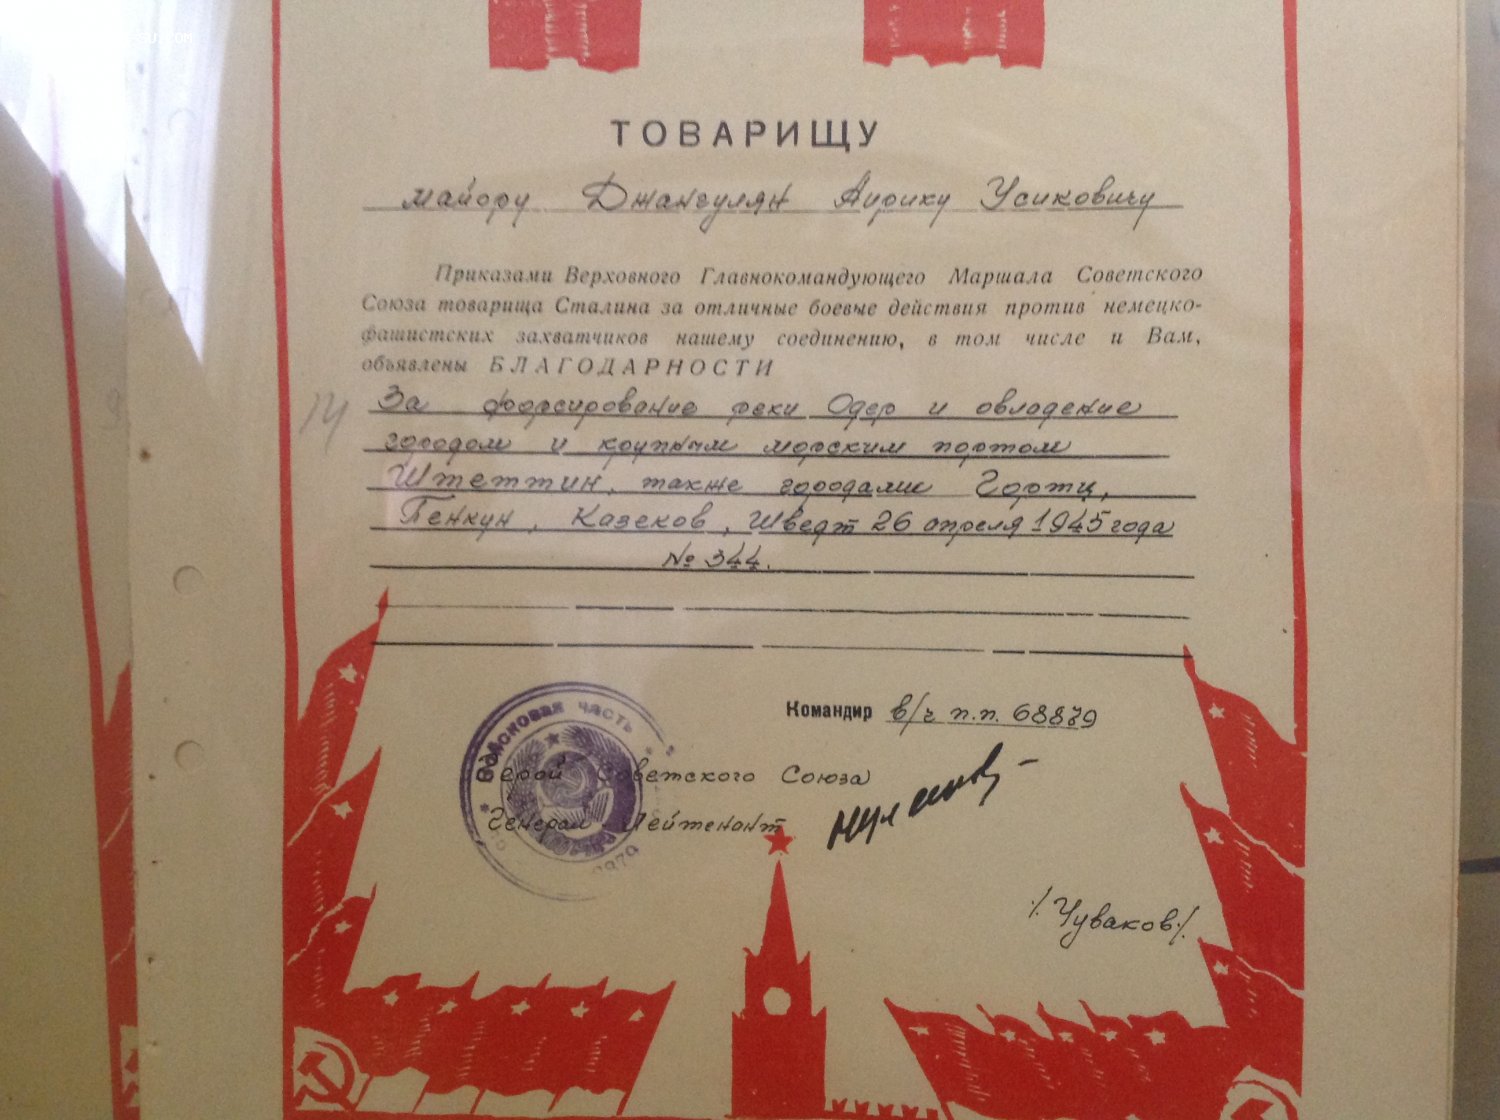 ТОВАРИЩУ
майору Джангулян Айрику Усиковичу
Приказами Верховного Главнокомандующего Маршала Советского
Союза товарища Сталина за отличные боевые действия против немецко-
фашистских захватчиков нашему соединению, в том числе и Вам,
объявлены БЛАГОДАРНОСТИ
За форсирование реки Одер и овладение
городом и крупным морским портом
Штеттин, также городами Гортц,
Пенкун, Казеков, Шведт 26 апреля 1945 года
№ 344.
Командир в/ч п.п. 68879
Войсковая часть
Герой Советского Союза
Генерал-Лейтенант
/Чуваков/